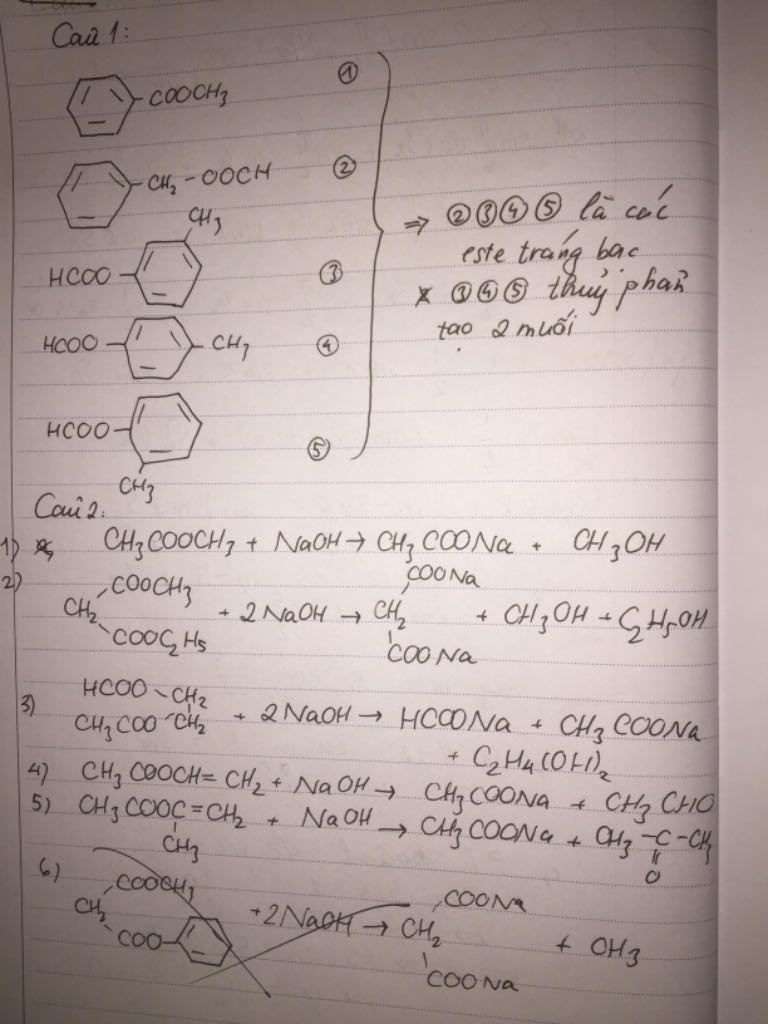 Câu 1:
COOCH3 ①
CH2 - OOCH ②
CH3
HCOO ③
HCOO CH3 ④
HCOO ⑤
CH3
⇒ ② ③ ④ ⑤ là các
este tráng bạc
③ ④ ⑤ thuỷ phân
tạo 2 muối
Câu 2:
1) CH3COOCH3 + NaOH → CH3COONa + CH3OH
2) CH2 COOCH3 COOC2H5 + 2NaOH → CH2 COONa COONa + CH3OH + C2H5OH
3) HCOO - CH2
CH3COO - CH2 + 2NaOH → HCOONa + CH3COONa
+ C2H4(OH)2
4) CH3COOCH = CH2 + NaOH → CH3COONa + CH3CHO
5) CH3COOC = CH2 + NaOH → CH3COONa + CH3 - C - CH3
CH3 O
6) CH2 COOCH3 COO + 2NaOH → CH2 COONa COONa + OH3